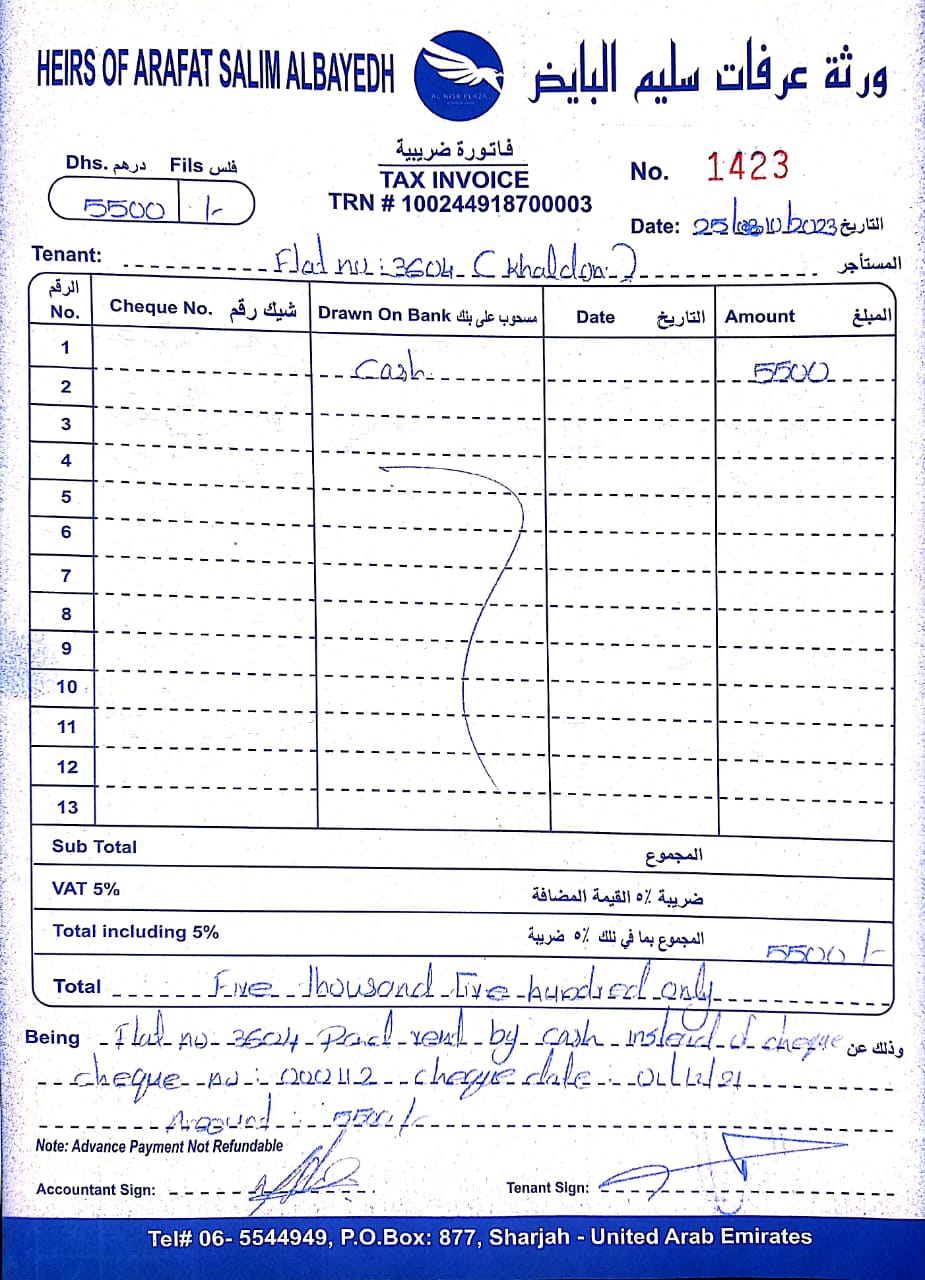 HEIRS OF ARAFAT SALIM ALBAYEDH
ورثة عرفات سليم البايض
AL NISR PLAZA
Dhs. درهم Fils فلس
5500 /-
فاتورة ضريبية
TAX INVOICE
TRN # 100244918700003
No. 1423
Date: 25/10/2023 التاريخ
Tenant: Flat no : 3604 (Khaldon) المستأجر
الرقم No. Cheque No. شيك رقم Drawn On Bank مسحوب على بنك Date التاريخ Amount المبلغ
1
Cash 5500
2
3
4
5
6
7
8
9
10
11
12
13
Sub Total المجموع
VAT 5% ضريبة ٥٪ القيمة المضافة
Total including 5% المجموع بما في ذلك ٥٪ ضريبة 5500/-
Total Five Thousand Five hundred only
Being Flat no 3604 Paid rent by cash instead of cheque وذلك عن
cheque no : 000112 cheque date :
5500/-
Note: Advance Payment Not Refundable
Accountant Sign:
Tenant Sign:
Tel# 06- 5544949, P.O.Box: 877, Sharjah - United Arab Emirates